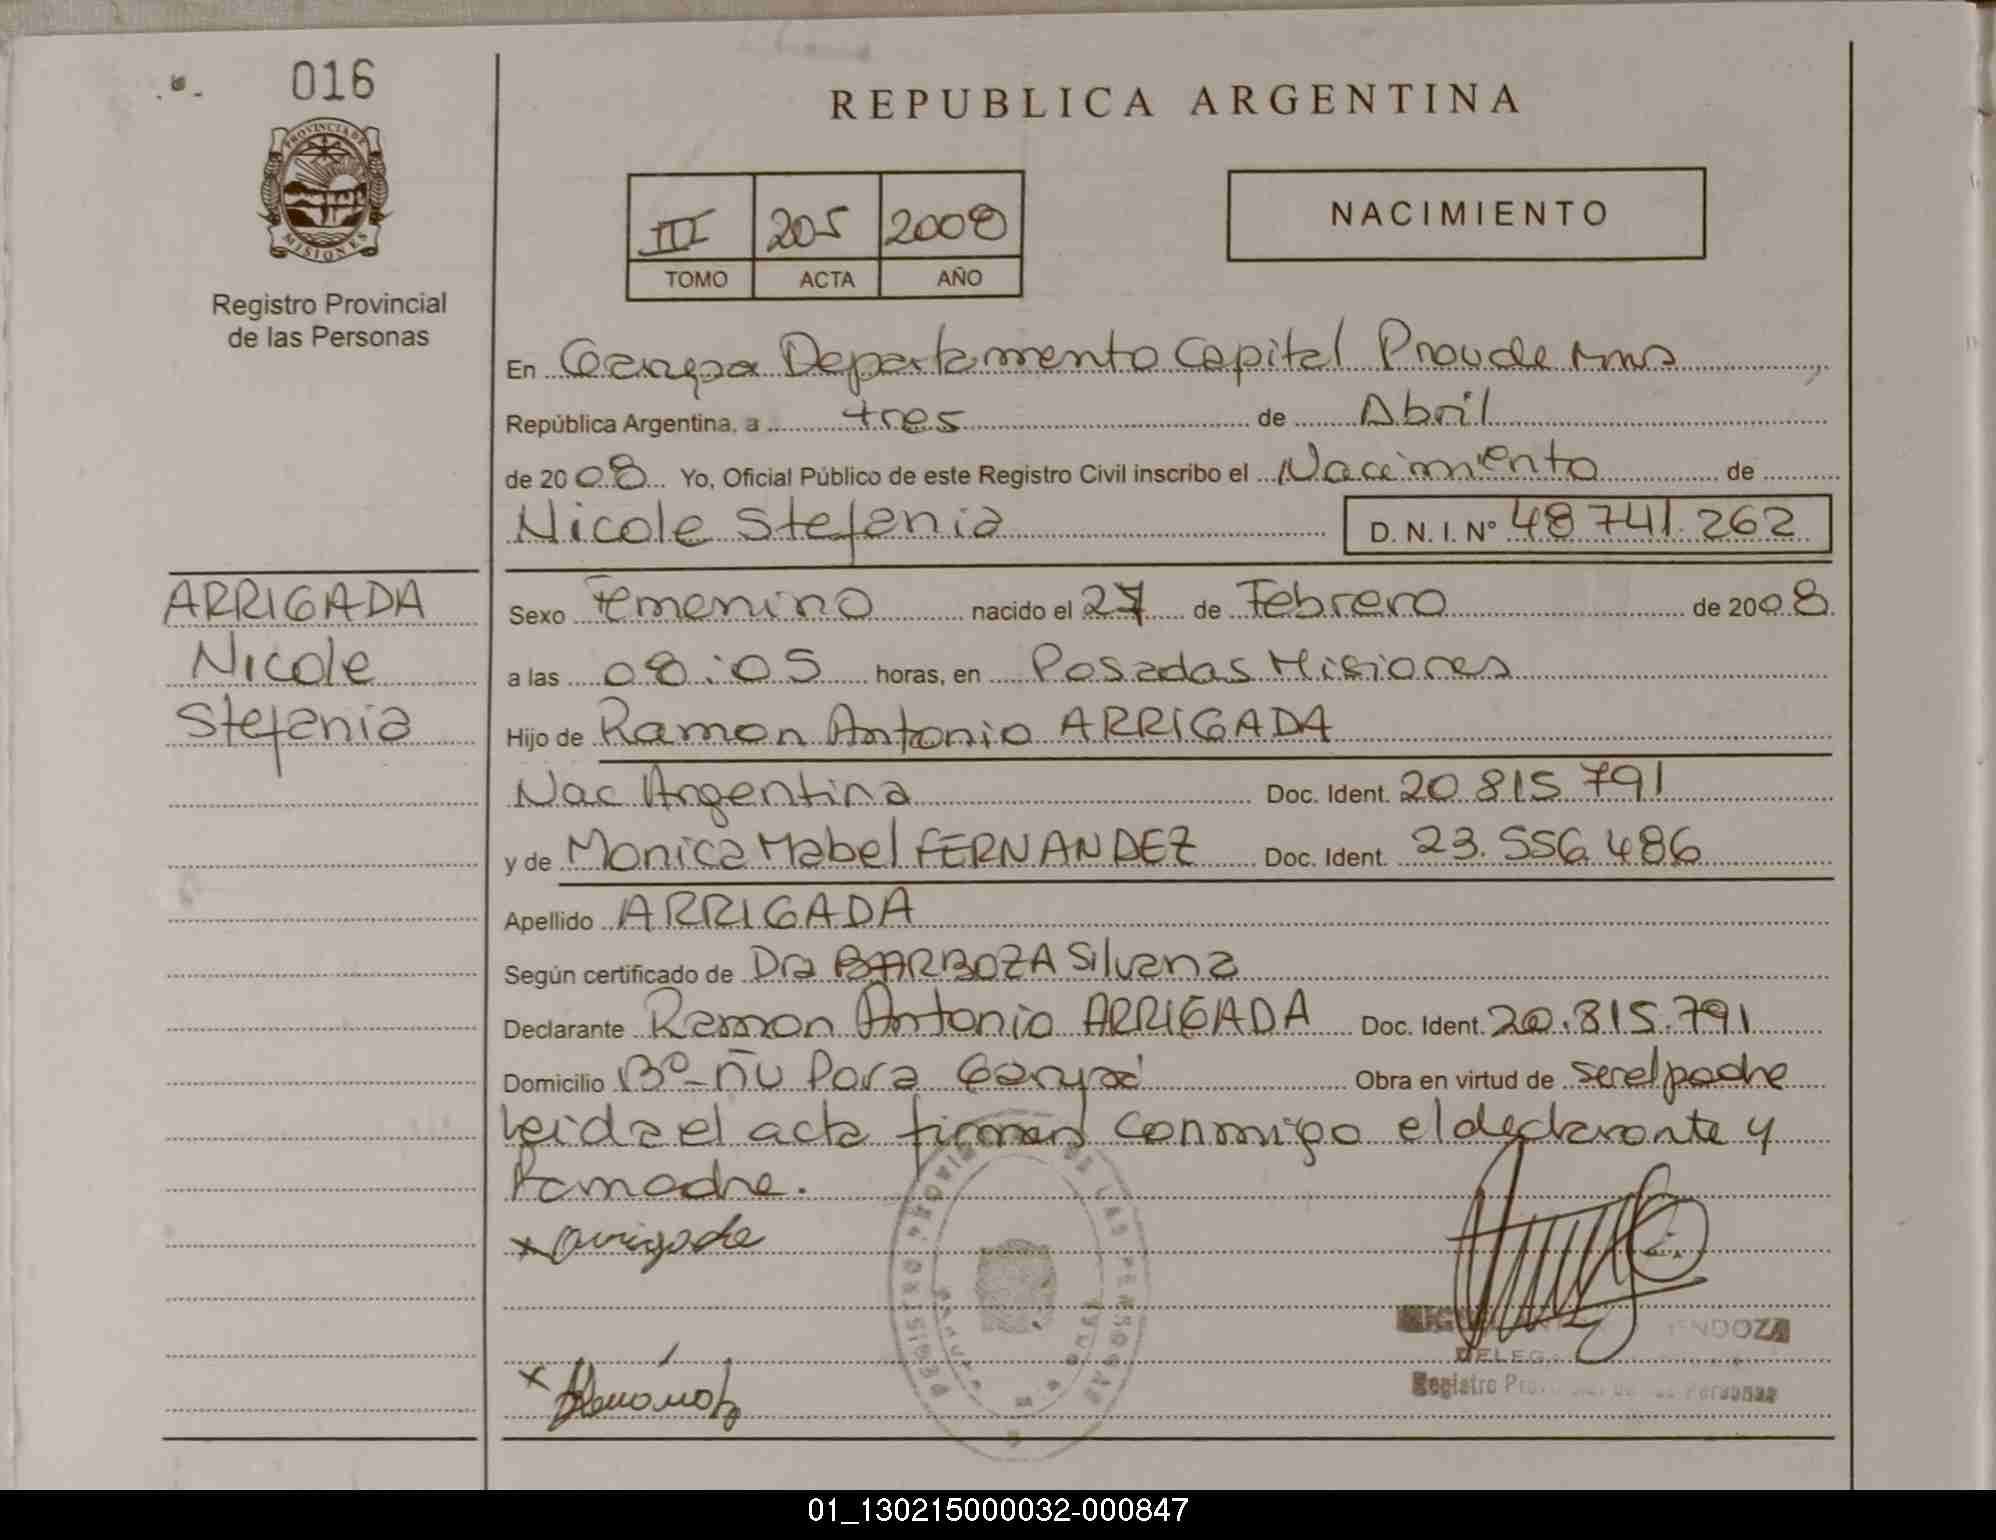 016
PROVINCIA DE
MISIONES
Registro Provincial
de las Personas
REPUBLICA ARGENTINA
III 205 2008
TOMO ACTA AÑO
NACIMIENTO
En Garupa Departamento Capital Prov de Mnes
República Argentina, a tres de Abril
de 2008 Yo, Oficial Público de este Registro Civil inscribo el Nacimiento de
Nicole Stefania D. N. I. N° 48 741.262
ARRIGADA
Nicole
Stefania
Sexo Femenino nacido el 27 de Febrero de 2008
a las 08:05 horas, en Posadas Misiones
Hijo de Ramon Antonio ARRIGADA
Nac Argentina Doc. Ident. 20 815 791
y de Monica Mabel FERNANDEZ Doc. Ident. 23.556.486
Apellido ARRIGADA
Según certificado de Dra BARBOZA Silvana
Declarante Ramon Antonio ARRIGADA Doc. Ident. 20.815.791
Domicilio Bº-Ñu Pora Garupá Obra en virtud de ser el padre
Leida el acta firman conmigo el declarante y
la madre.
x Arrigada
x
MENDOZA
Registro Provincial de las Personas
REGISTRO PROVINCIAL DE LAS PERSONAS
01_130215000032-000847